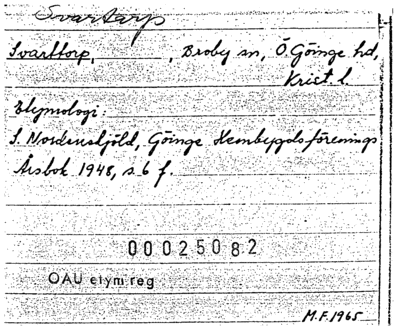 Svartarp
Svarttorp, , Broby sn, Ö. Göinge hd,
Krist. l.
Etymologi:
S. Nordenskjöld, Göinge Hembygdsförenings
Årsbok 1948, s. 6 f.
00025082
OAU etym.reg
M.F. 1965